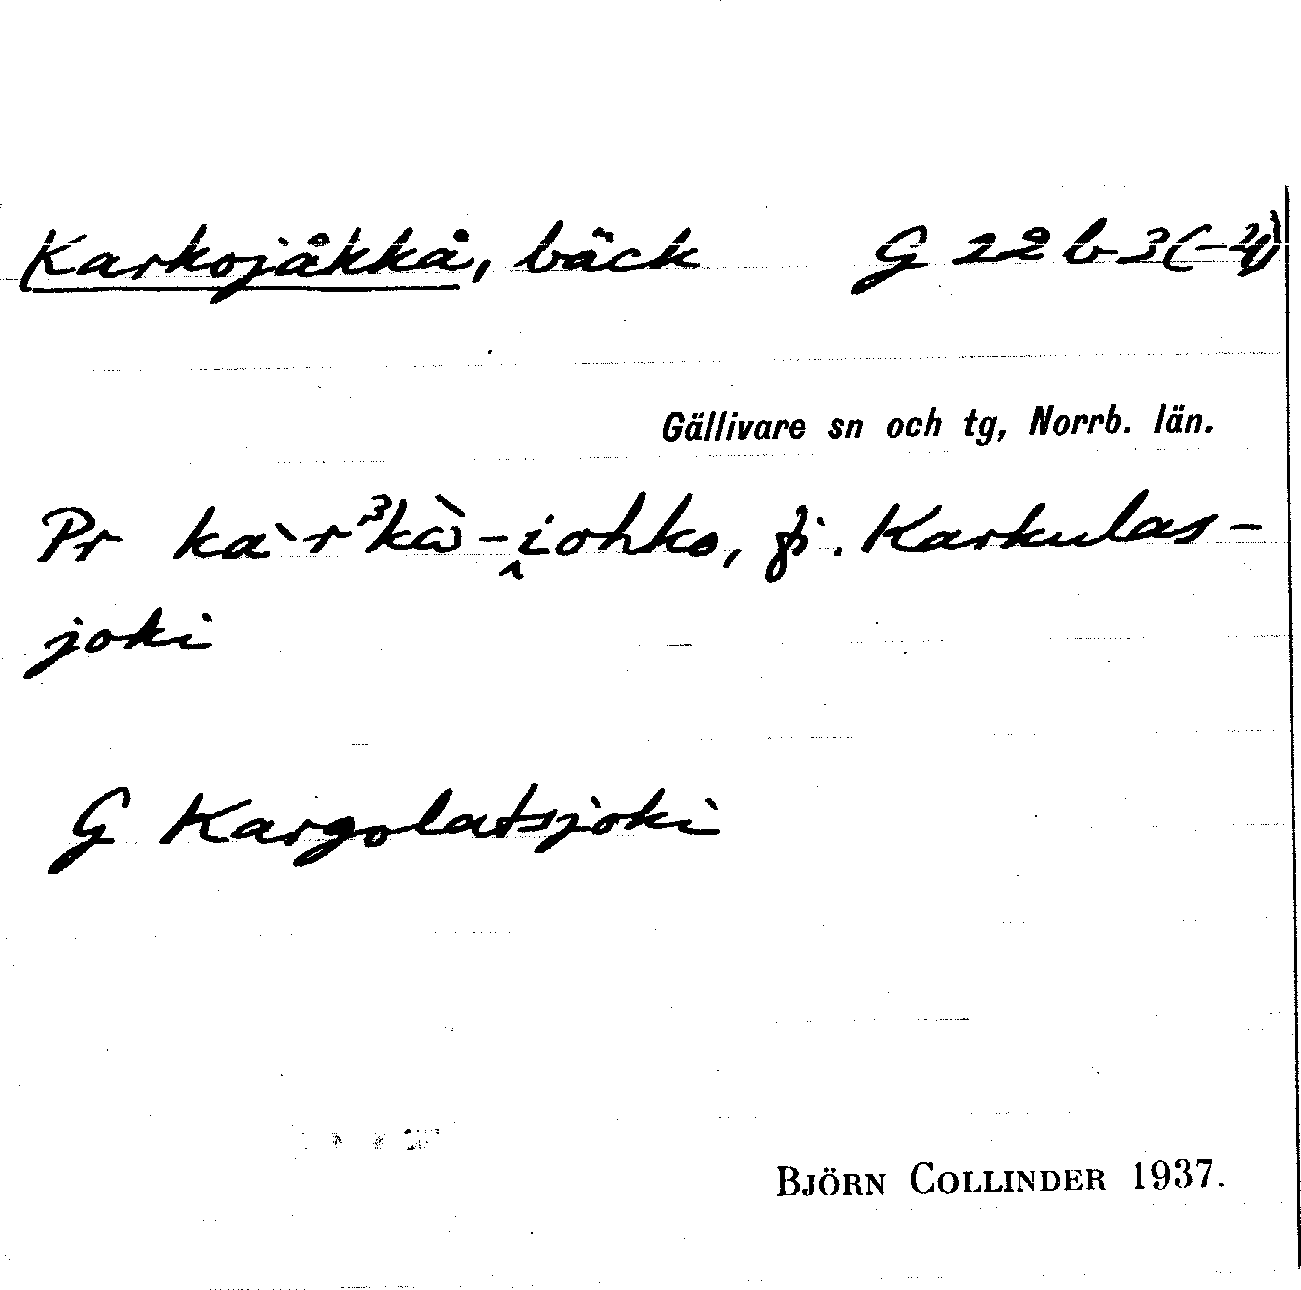 Karkojåkkå, bäck G 22 b 3(-4)
Gällivare sn och tg, Norrb. län.
Pr kaˋr³kὼ-i̭ohko, fi. Karkulas-
joki
G Kargolatsjoki
BJÖRN COLLINDER 1937.